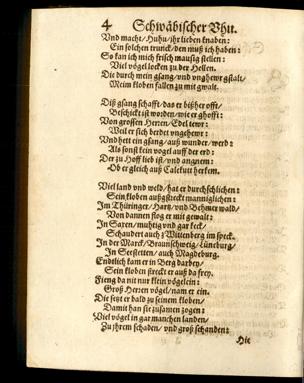 4 Schwäbischer Vhu.
Vnd macht / Huhu / ihr lieben knaben:
Ein solchen trunck / den muß ich haben:
So kan ich mich frisch mausig stellen:
Viel vögel locken zu der Hellen.
Die durch mein gsang / vnd vngehewr gstalt /
Meim kloben fallen zu mit gwalt.
Diß gsang schafft / das er bißher offt /
Beschickt ist worden / wie er ghofft:
Von grossen Herren / Edel tewr:
Weil er sich berdet vngehewr:
Vnd hett ein gsang / auß wunder / werd:
Als sonst kein vogel auff der erd:
Der zu Hoff lieb ist / vnd angnem:
Ob er gleich auß Calekutt herkem.
Viel land vnd weld / hat er durchschlichen:
Sein kloben außgstreckt manniglichen:
Im Thüringer / Hartz / vnd Behmer wald /
Von dannen flog er mit gewalt:
In Saxen / muhtig vnd gar keck /
Schaudert auch z Wittenberg im speck.
In der Marck / Braunschweig / Lüneburg /
In Seestetten / auch Magdeburg.
Endtlich kam er in Berg darbey /
Sein kloben streckt er auß da frey.
Fieng da nit nur klein vögelein:
Groß Herren vögel / nam er ein.
Die setzt er bald zu seinem kloben /
Damit han sie zusamen zogen:
Viel vögel in gar manchen landen /
Zu jhrem schaden / vnd groß schanden:
Hie